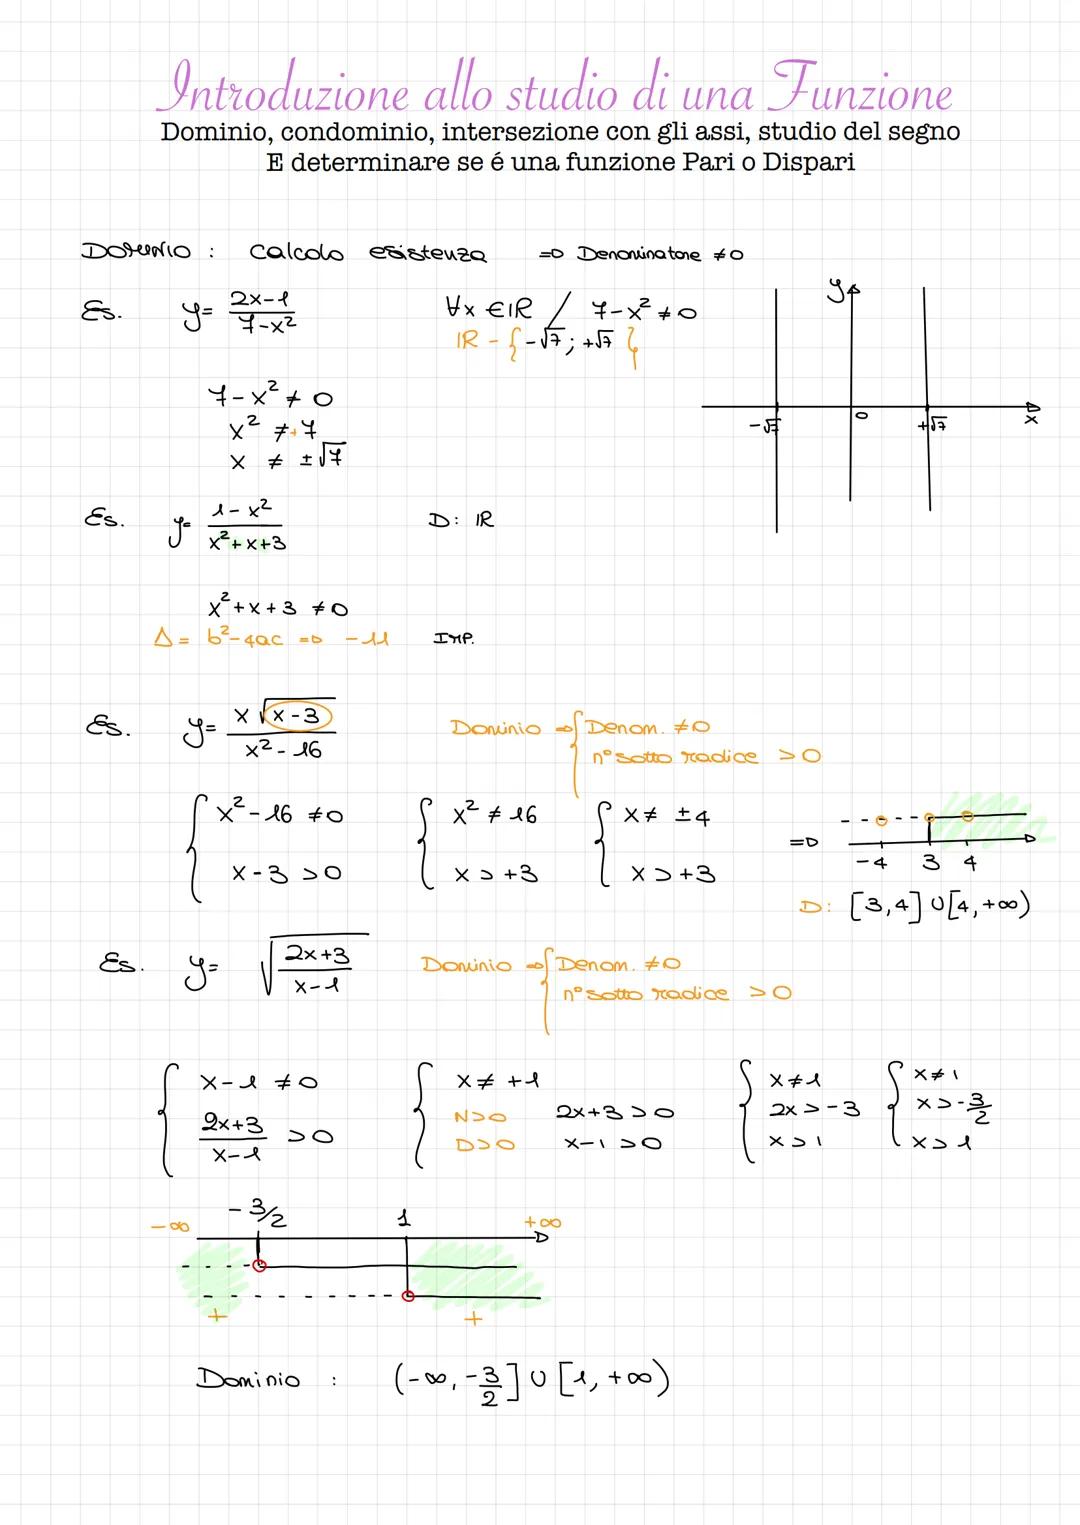 Introduzione allo studio di una Funzione
Dominio, condominio, intersezione con gli assi, studio del segno
E determinare se é una funzione Pari o Dispari
Dominio : calcolo esistenza => Denominatore ≠0
Es. y= (2x-1)/(7-x²) ∀x ∈ IR / 7-x² ≠0
IR - {-√7; +√7}
7-x² ≠ 0
x² ≠+7
x ≠ ±√7
y
-√7 0 +√7 x
Es. y= (1-x²)/(x²+x+3) D: IR
x²+x+3 ≠0
Δ= b²-4ac => -11 IMP.
Es. y= (x√(x-3))/(x²-16) Dominio => { Denom. ≠0
n° sotto radice >0
{ x²-16 ≠0 { x² ≠ 16 { x≠ ±4
x-3 >0 x > +3 x > +3
=> -4 3 4
D: [3,4] ∪ [4,+∞)
Es. y= √((2x+3)/(x-1)) Dominio => { Denom. ≠0
n° sotto radice >0
{ x-1 ≠0 { x≠ +1 { x≠1 { x≠1
(2x+3)/(x-1) >0 N>0 2x+3>0 2x>-3 x>-3/2
D>0 x-1>0 x>1 x>1
-∞ -3/2 1 +∞
+ +
Dominio : (-∞,-3/2] ∪ [1,+∞)